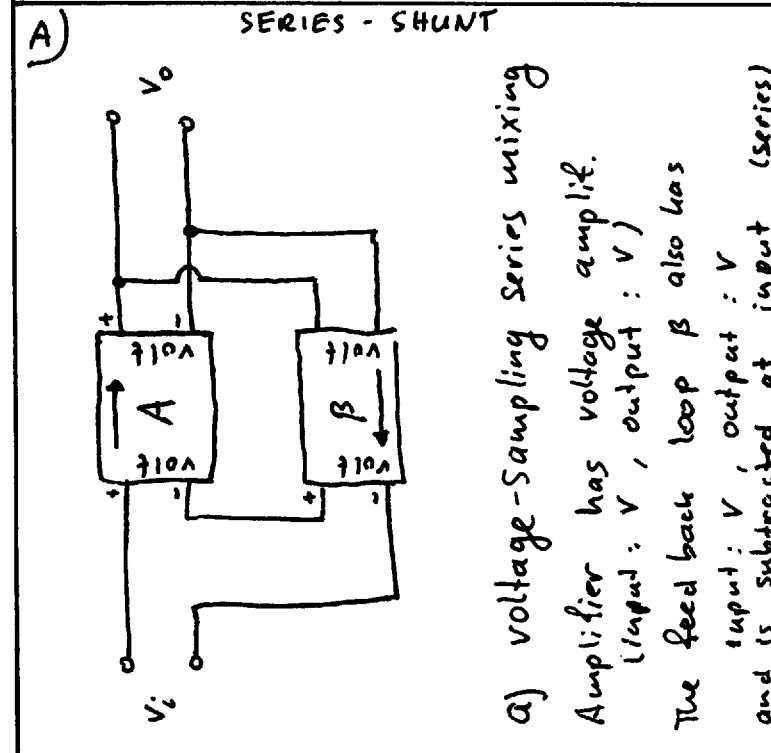 A)
SERIES - SHUNT
Vo
+ -
volt
A
volt
+ -
volt
β
volt
+ -
Vi
a) voltage-Sampling series mixing
Amplifier has voltage amplif.
(input : V , output : V)
The feed back loop β also has
input : V , output : V
and is subtracted at input (series)